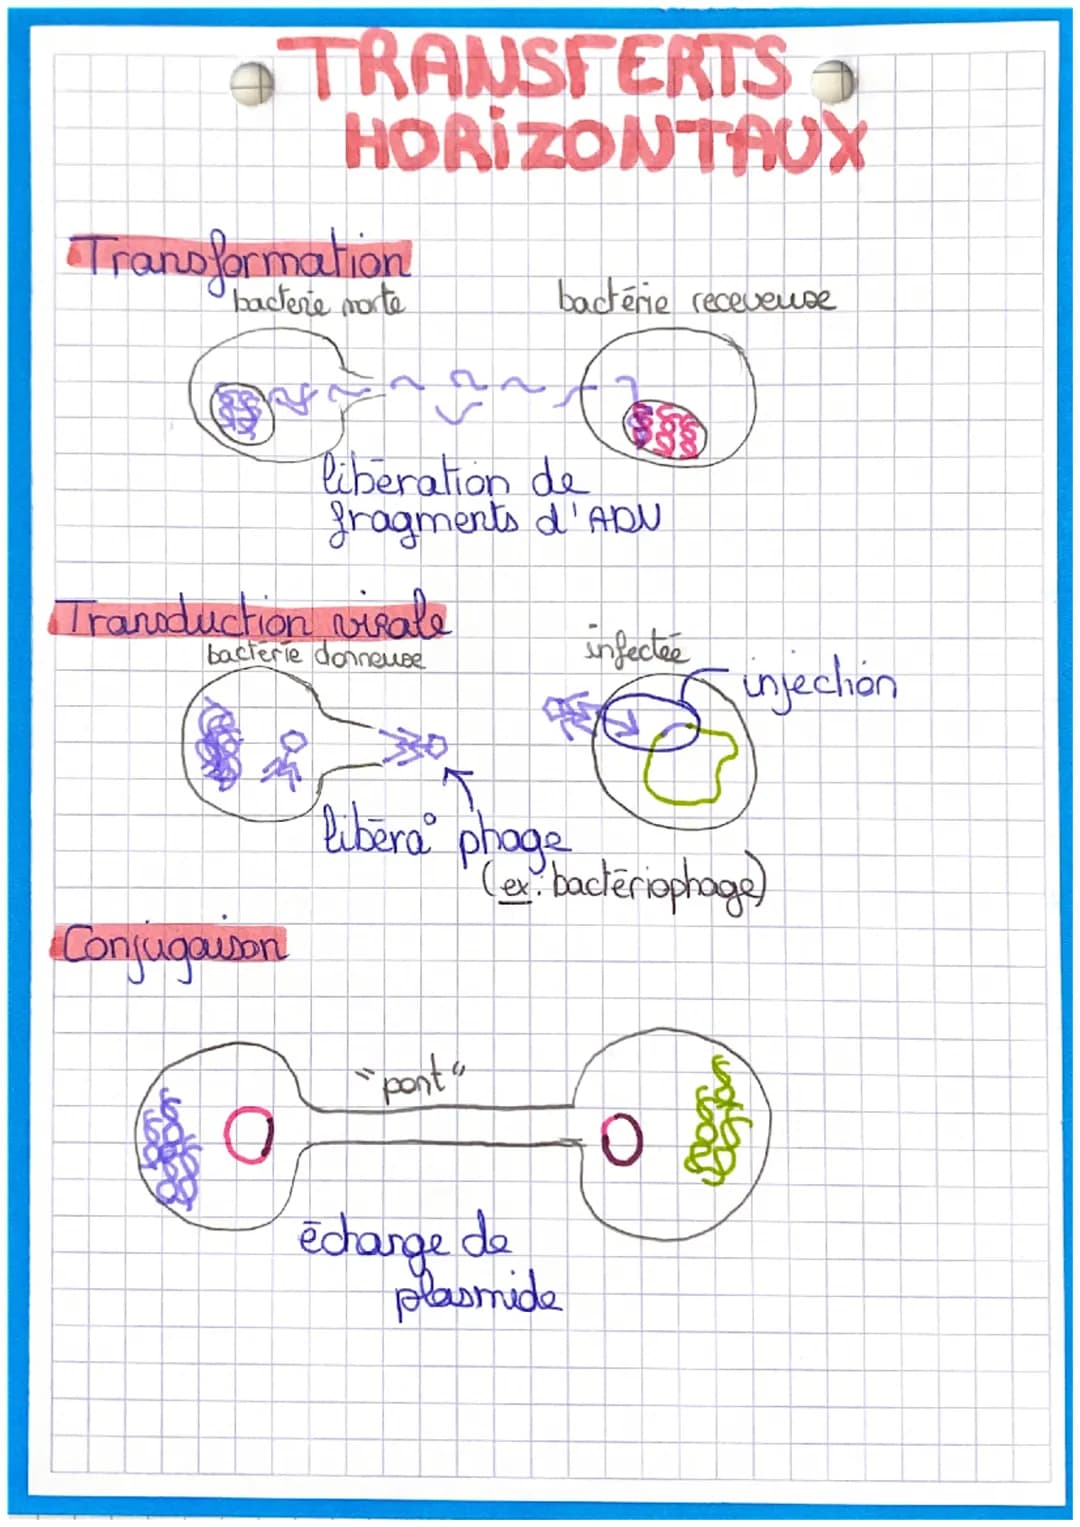 TRANSFERTS
HORiZONTAUX
Transformation
bacterie morte
bactérie receveuse
libération de
fragments d'ADN
Transduction virale
bactérie donneuse
infectée
injection
libéra° phage
(ex: bactériophage)
Conjugaison
"pont"
échange de
plasmide